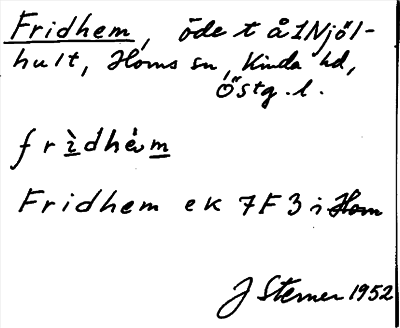 Fridhem, öde t å 1 Njöl-
hult, Horns sn, Kinda hd,
Östg. l.
frìdhém
Fridhem ek 7F3 i Horn
J Sterner 1952